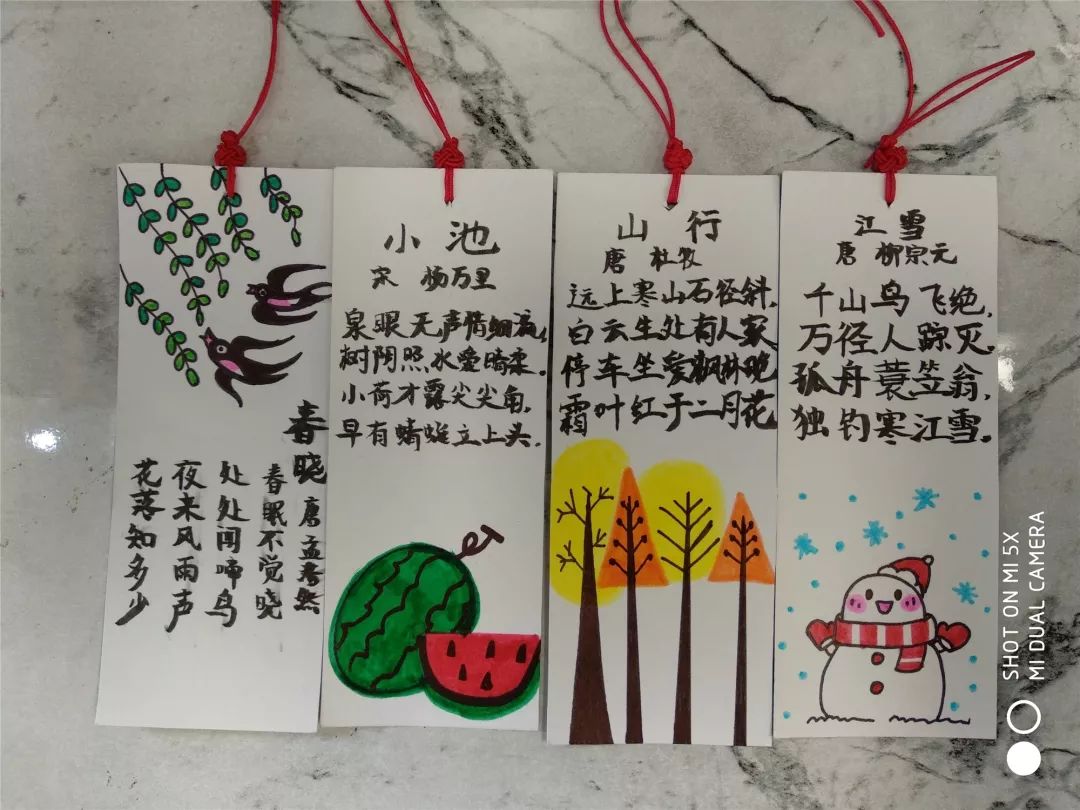 春晓 唐 孟浩然
春眠不觉晓
处处闻啼鸟
夜来风雨声
花落知多少
小池
宋 杨万里
泉眼无声惜细流,
树阴照水爱晴柔.
小荷才露尖尖角,
早有蜻蜓立上头.
山行
唐 杜牧
远上寒山石径斜,
白云生处有人家
停车坐爱枫林晚
霜叶红于二月花
江雪
唐 柳宗元
千山鸟飞绝,
万径人踪灭.
孤舟蓑笠翁,
独钓寒江雪.
SHOT ON MI 5X
MI DUAL CAMERA